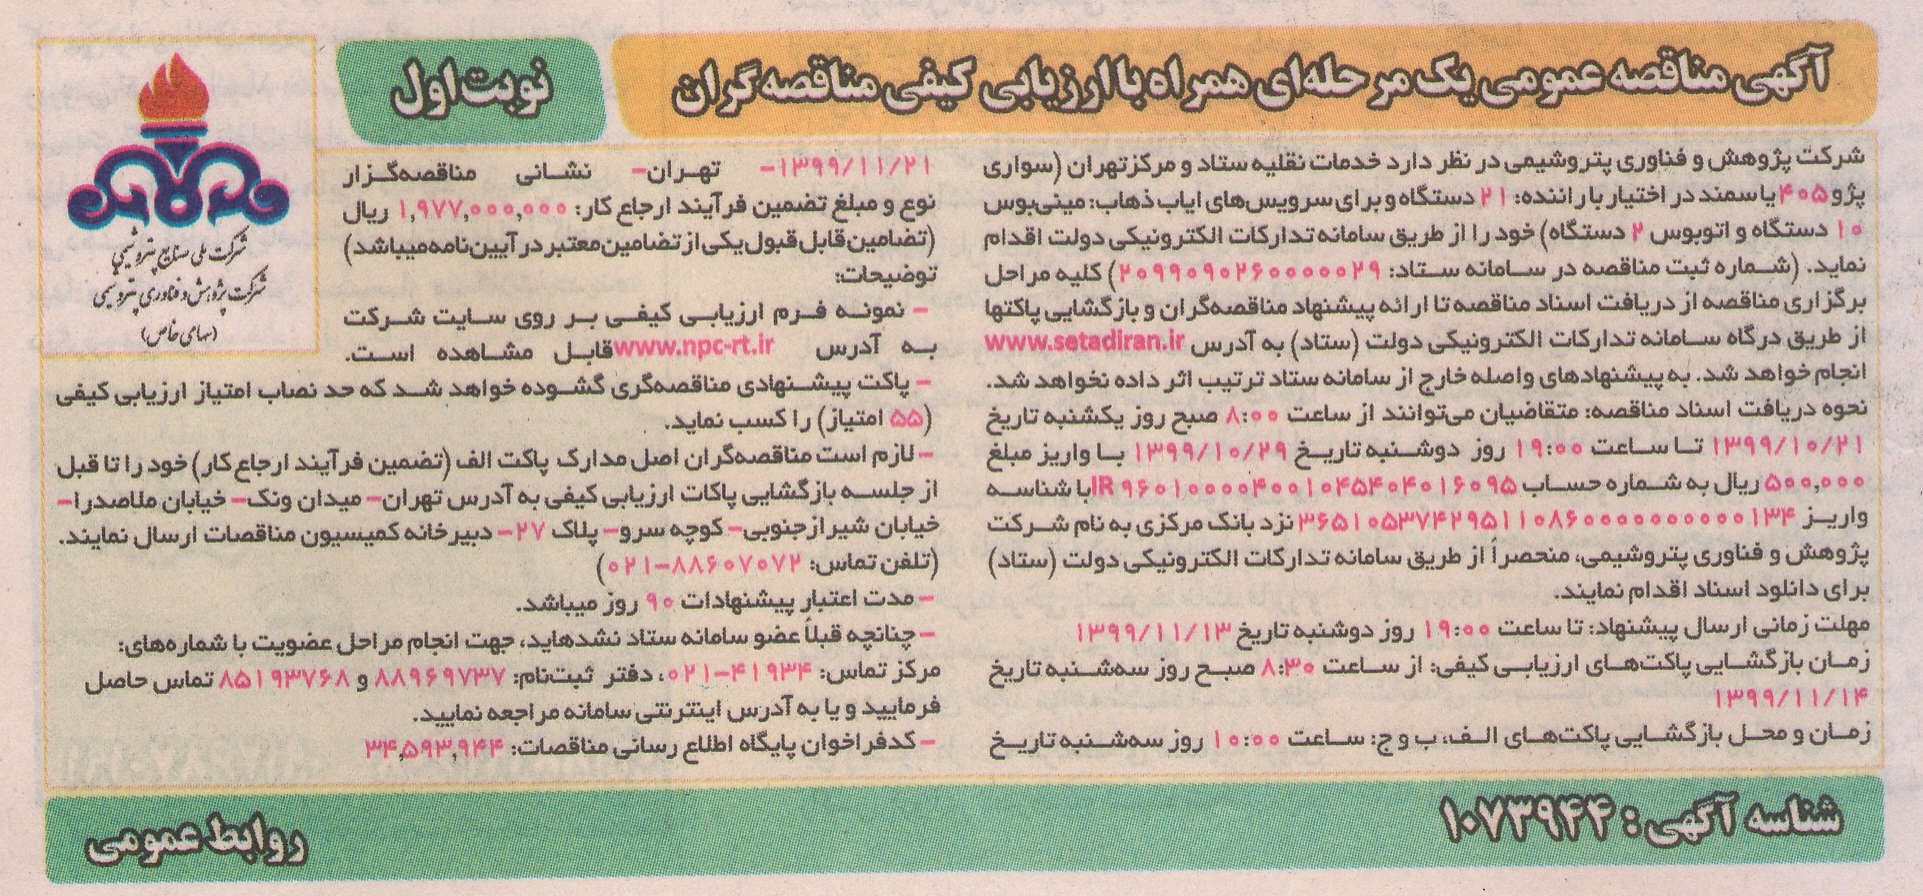 آگهی مناقصه عمومی یک مرحله‌ای همراه با ارزیابی کیفی مناقصه‌گران
نوبت اول
شرکت ملی صنایع پتروشیمی
شرکت پژوهش و فناوری پتروشیمی
(سهامی خاص)
شرکت پژوهش و فناوری پتروشیمی در نظر دارد خدمات نقلیه ستاد و مرکز تهران (سواری
پژو ۴۰۵ یا سمند در اختیار با راننده: ۲۱ دستگاه و برای سرویس‌های ایاب ذهاب: مینی‌بوس
۱۰ دستگاه و اتوبوس ۲ دستگاه) خود را از طریق سامانه تدارکات الکترونیکی دولت اقدام
نماید. (شماره ثبت مناقصه در سامانه ستاد: ۲۰۹۹۰۹۰۲۶۰۰۰۰۰۲۹) کلیه مراحل
برگزاری مناقصه از دریافت اسناد مناقصه تا ارائه پیشنهاد مناقصه‌گران و بازگشایی پاکتها
از طریق درگاه سامانه تدارکات الکترونیکی دولت (ستاد) به آدرس www.setadiran.ir
انجام خواهد شد. به پیشنهادهای واصله خارج از سامانه ستاد ترتیب اثر داده نخواهد شد.
نحوه دریافت اسناد مناقصه: متقاضیان می‌توانند از ساعت ۸:۰۰ صبح روز یکشنبه تاریخ
۱۳۹۹/۱۰/۲۱ تا ساعت ۱۹:۰۰ روز دوشنبه تاریخ ۱۳۹۹/۱۰/۲۹ با واریز مبلغ
۵۰۰,۰۰۰ ریال به شماره حساب IR ۹۶۰۱۰۰۰۰۴۰۰۱۰۴۵۴۰۴۰۱۶۰۹۵ با شناسه
واریز ۳۶۵۱۰۵۳۷۴۲۹۵۱۱۰۸۶۰۰۰۰۰۰۰۰۰۰۰۱۳۴ نزد بانک مرکزی به نام شرکت
پژوهش و فناوری پتروشیمی، منحصراً از طریق سامانه تدارکات الکترونیکی دولت (ستاد)
برای دانلود اسناد اقدام نمایند.
مهلت زمانی ارسال پیشنهاد: تا ساعت ۱۹:۰۰ روز دوشنبه تاریخ ۱۳۹۹/۱۱/۱۳
زمان بازگشایی پاکت‌های ارزیابی کیفی: از ساعت ۸:۳۰ صبح روز سه‌شنبه تاریخ
۱۳۹۹/۱۱/۱۴
زمان و محل بازگشایی پاکت‌های الف، ب و ج: ساعت ۱۰:۰۰ روز سه‌شنبه تاریخ
۱۳۹۹/۱۱/۲۱- تهران- نشانی مناقصه‌گزار
نوع و مبلغ تضمین فرآیند ارجاع کار: ۱,۹۷۷,۰۰۰,۰۰۰ ریال
(تضامین قابل قبول یکی از تضامین معتبر در آیین‌نامه میباشد)
توضیحات:
- نمونه فرم ارزیابی کیفی بر روی سایت شرکت
به آدرس www.npc-rt.ir قابل مشاهده است.
- پاکت پیشنهادی مناقصه‌گری گشوده خواهد شد که حد نصاب امتیاز ارزیابی کیفی
(۵۵ امتیاز) را کسب نماید.
- لازم است مناقصه‌گران اصل مدارک پاکت الف (تضمین فرآیند ارجاع کار) خود را تا قبل
از جلسه بازگشایی پاکات ارزیابی کیفی به آدرس تهران- میدان ونک- خیابان ملاصدرا-
خیابان شیراز جنوبی- کوچه سرو- پلاک ۲۷- دبیرخانه کمیسیون مناقصات ارسال نمایند.
(تلفن تماس: ۸۸۶۰۷۰۷۲-۰۲۱)
- مدت اعتبار پیشنهادات ۹۰ روز میباشد.
- چنانچه قبلاً عضو سامانه ستاد نشده‌اید، جهت انجام مراحل عضویت با شماره‌های:
مرکز تماس: ۴۱۹۳۴-۰۲۱، دفتر ثبت‌نام: ۸۸۹۶۹۷۳۷ و ۸۵۱۹۳۷۶۸ تماس حاصل
فرمایید و یا به آدرس اینترنتی سامانه مراجعه نمایید.
- کدفراخوان پایگاه اطلاع رسانی مناقصات: ۳۴,۵۹۳,۹۴۴
شناسه آگهی : ۱۰۷۳۹۴۴
روابط عمومی